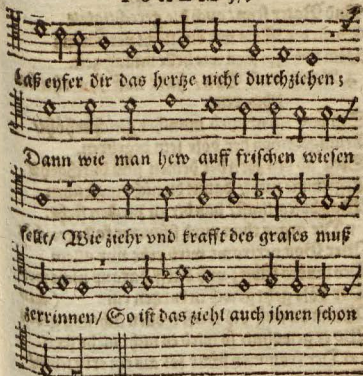 Laß eyfer dir das hertze nicht durchziehen;
Dann wie man hew auff frischen wiesen
fellt/ Wie ziehr vnd krafft des grases muß
zerrinnen/ So ist das ziehl auch jhnen schon